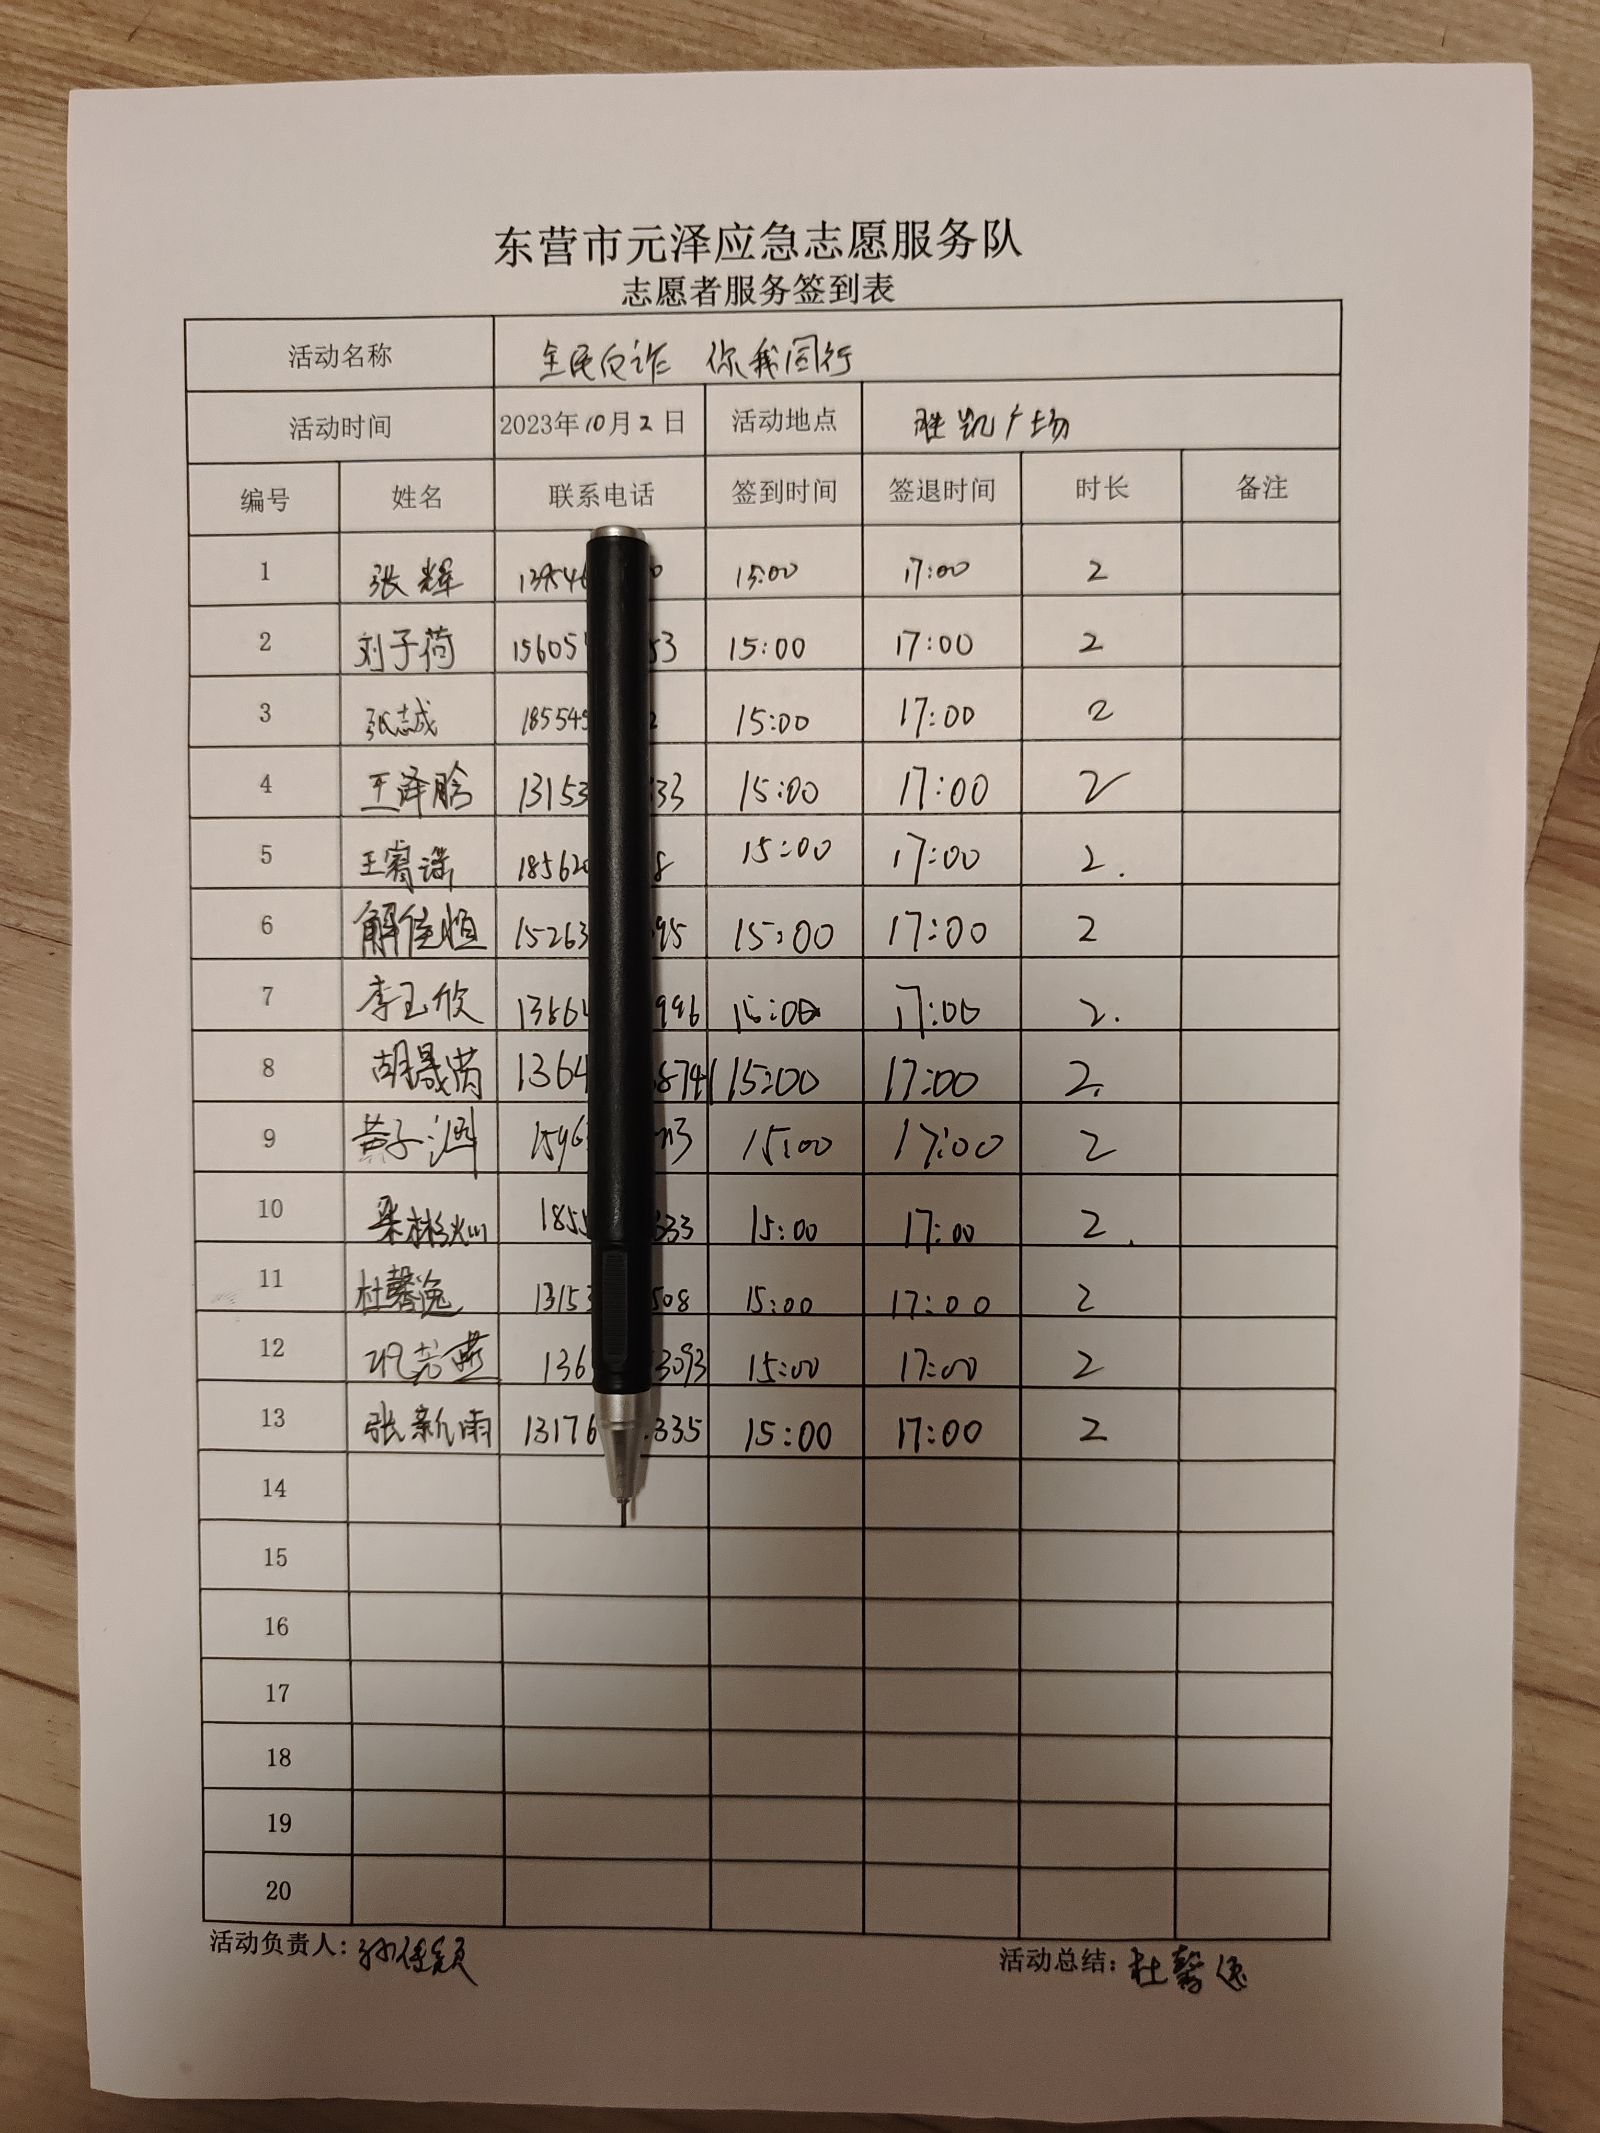 东营市元泽应急志愿服务队
志愿者服务签到表
活动名称 全民反诈 你我同行
活动时间 2023年10月2日 活动地点 胜凯广场
编号 姓名 联系电话 签到时间 签退时间 时长 备注
1 张辉 139546 0 15:00 17:00 2
2 刘子荷 15605 53 15:00 17:00 2
3 张志诚 185545 2 15:00 17:00 2
4 王泽晗 13153 33 15:00 17:00 2
5 王睿 18562 8 15:00 17:00 2.
6 解佳恒 15263 95 15:00 17:00 2
7 李玉欣 1386 996 15:00 17:00 2.
8 胡晟 1364 8741 15:00 17:00 2.
9 黄子涵 1596 3 15:00 17:00 2
10 梁彬灿 1855 333 15:00 17:00 2.
11 杜馨逸 13153 508 15:00 17:00 2
12 136 3093 15:00 17:00 2
13 张新雨 13176 335 15:00 17:00 2
14
15
16
17
18
19
20
活动负责人： 活动总结：杜馨逸